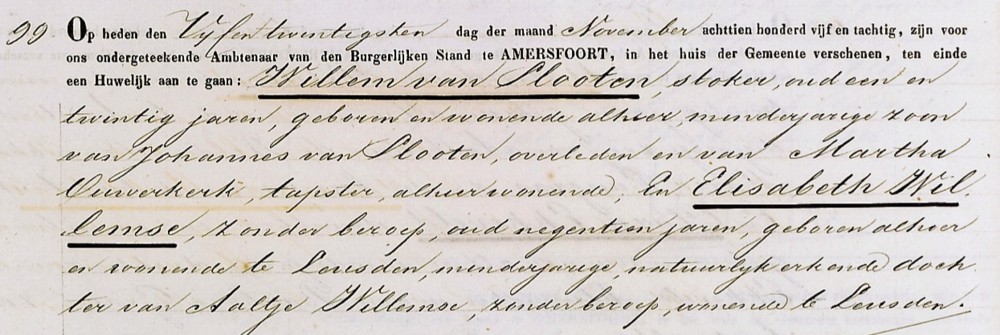 99 Op heden den Vyfentwintigsten dag der maand November achttien honderd vijf en tachtig, zijn voor
ons ondergeteekende Ambtenaar van den Burgerlijken Stand te AMERSFOORT, in het huis der Gemeente verschenen, ten einde
een Huwelijk aan te gaan: Willem van Slooten, stoker, oud een en
twintig jaren, geboren en wonende alhier, minderjarige zoon
van Johannes van Slooten, overleden en van Martha
Ouwerkerk, tapster, alhier wonende, En Elisabeth Wil
lemse, zonder beroep, oud negentien jaren, geboren alhier
en wonende te Leusden, minderjarige, natuurlijk erkende doch
ter van Aaltje Willemse, zonder beroep, wonende te Leusden.